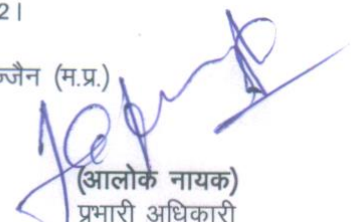 2।
ज्जैन (म.प्र.)
(आलोक नायक)
प्रभारी अधिकारी